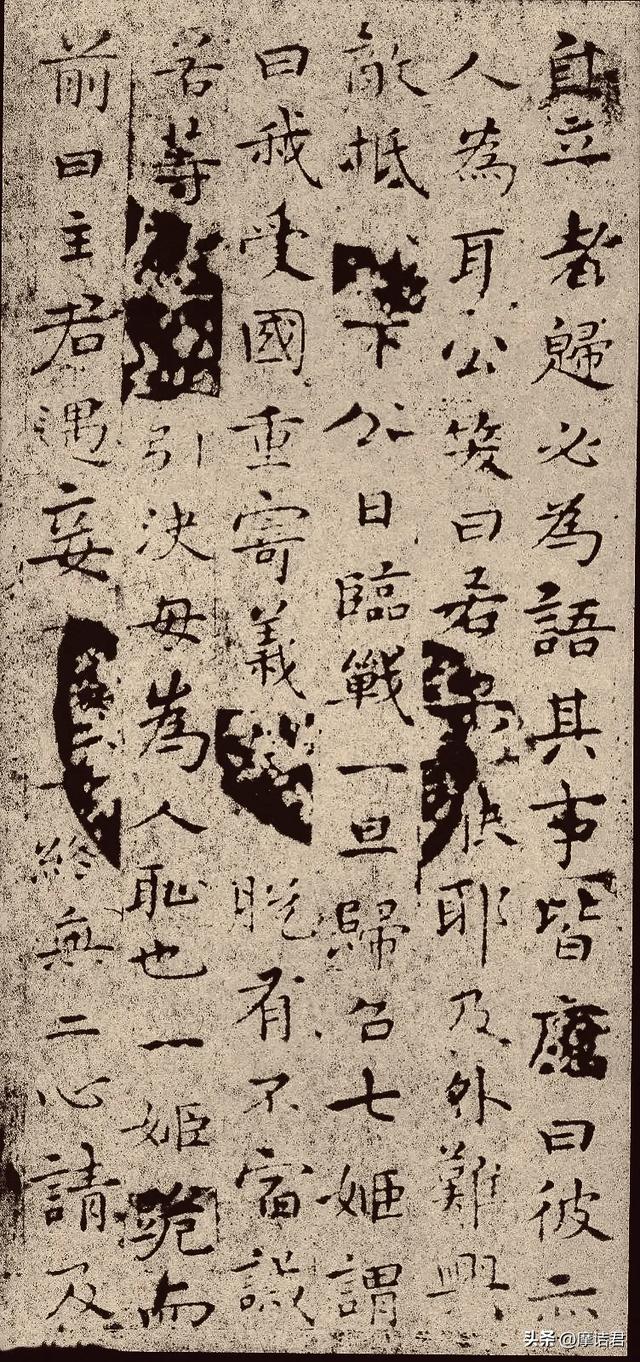 自立者歸必為語其事皆應曰彼亦
人為耳公笑曰若耶及外難興
敵抵下公日臨戰一旦歸召七姬謂
曰我受國重寄義脫有不宿誡
若等引決毋為人恥也一姬跪而
前曰主君遇妾終無二心請及
头条 @摩诘君